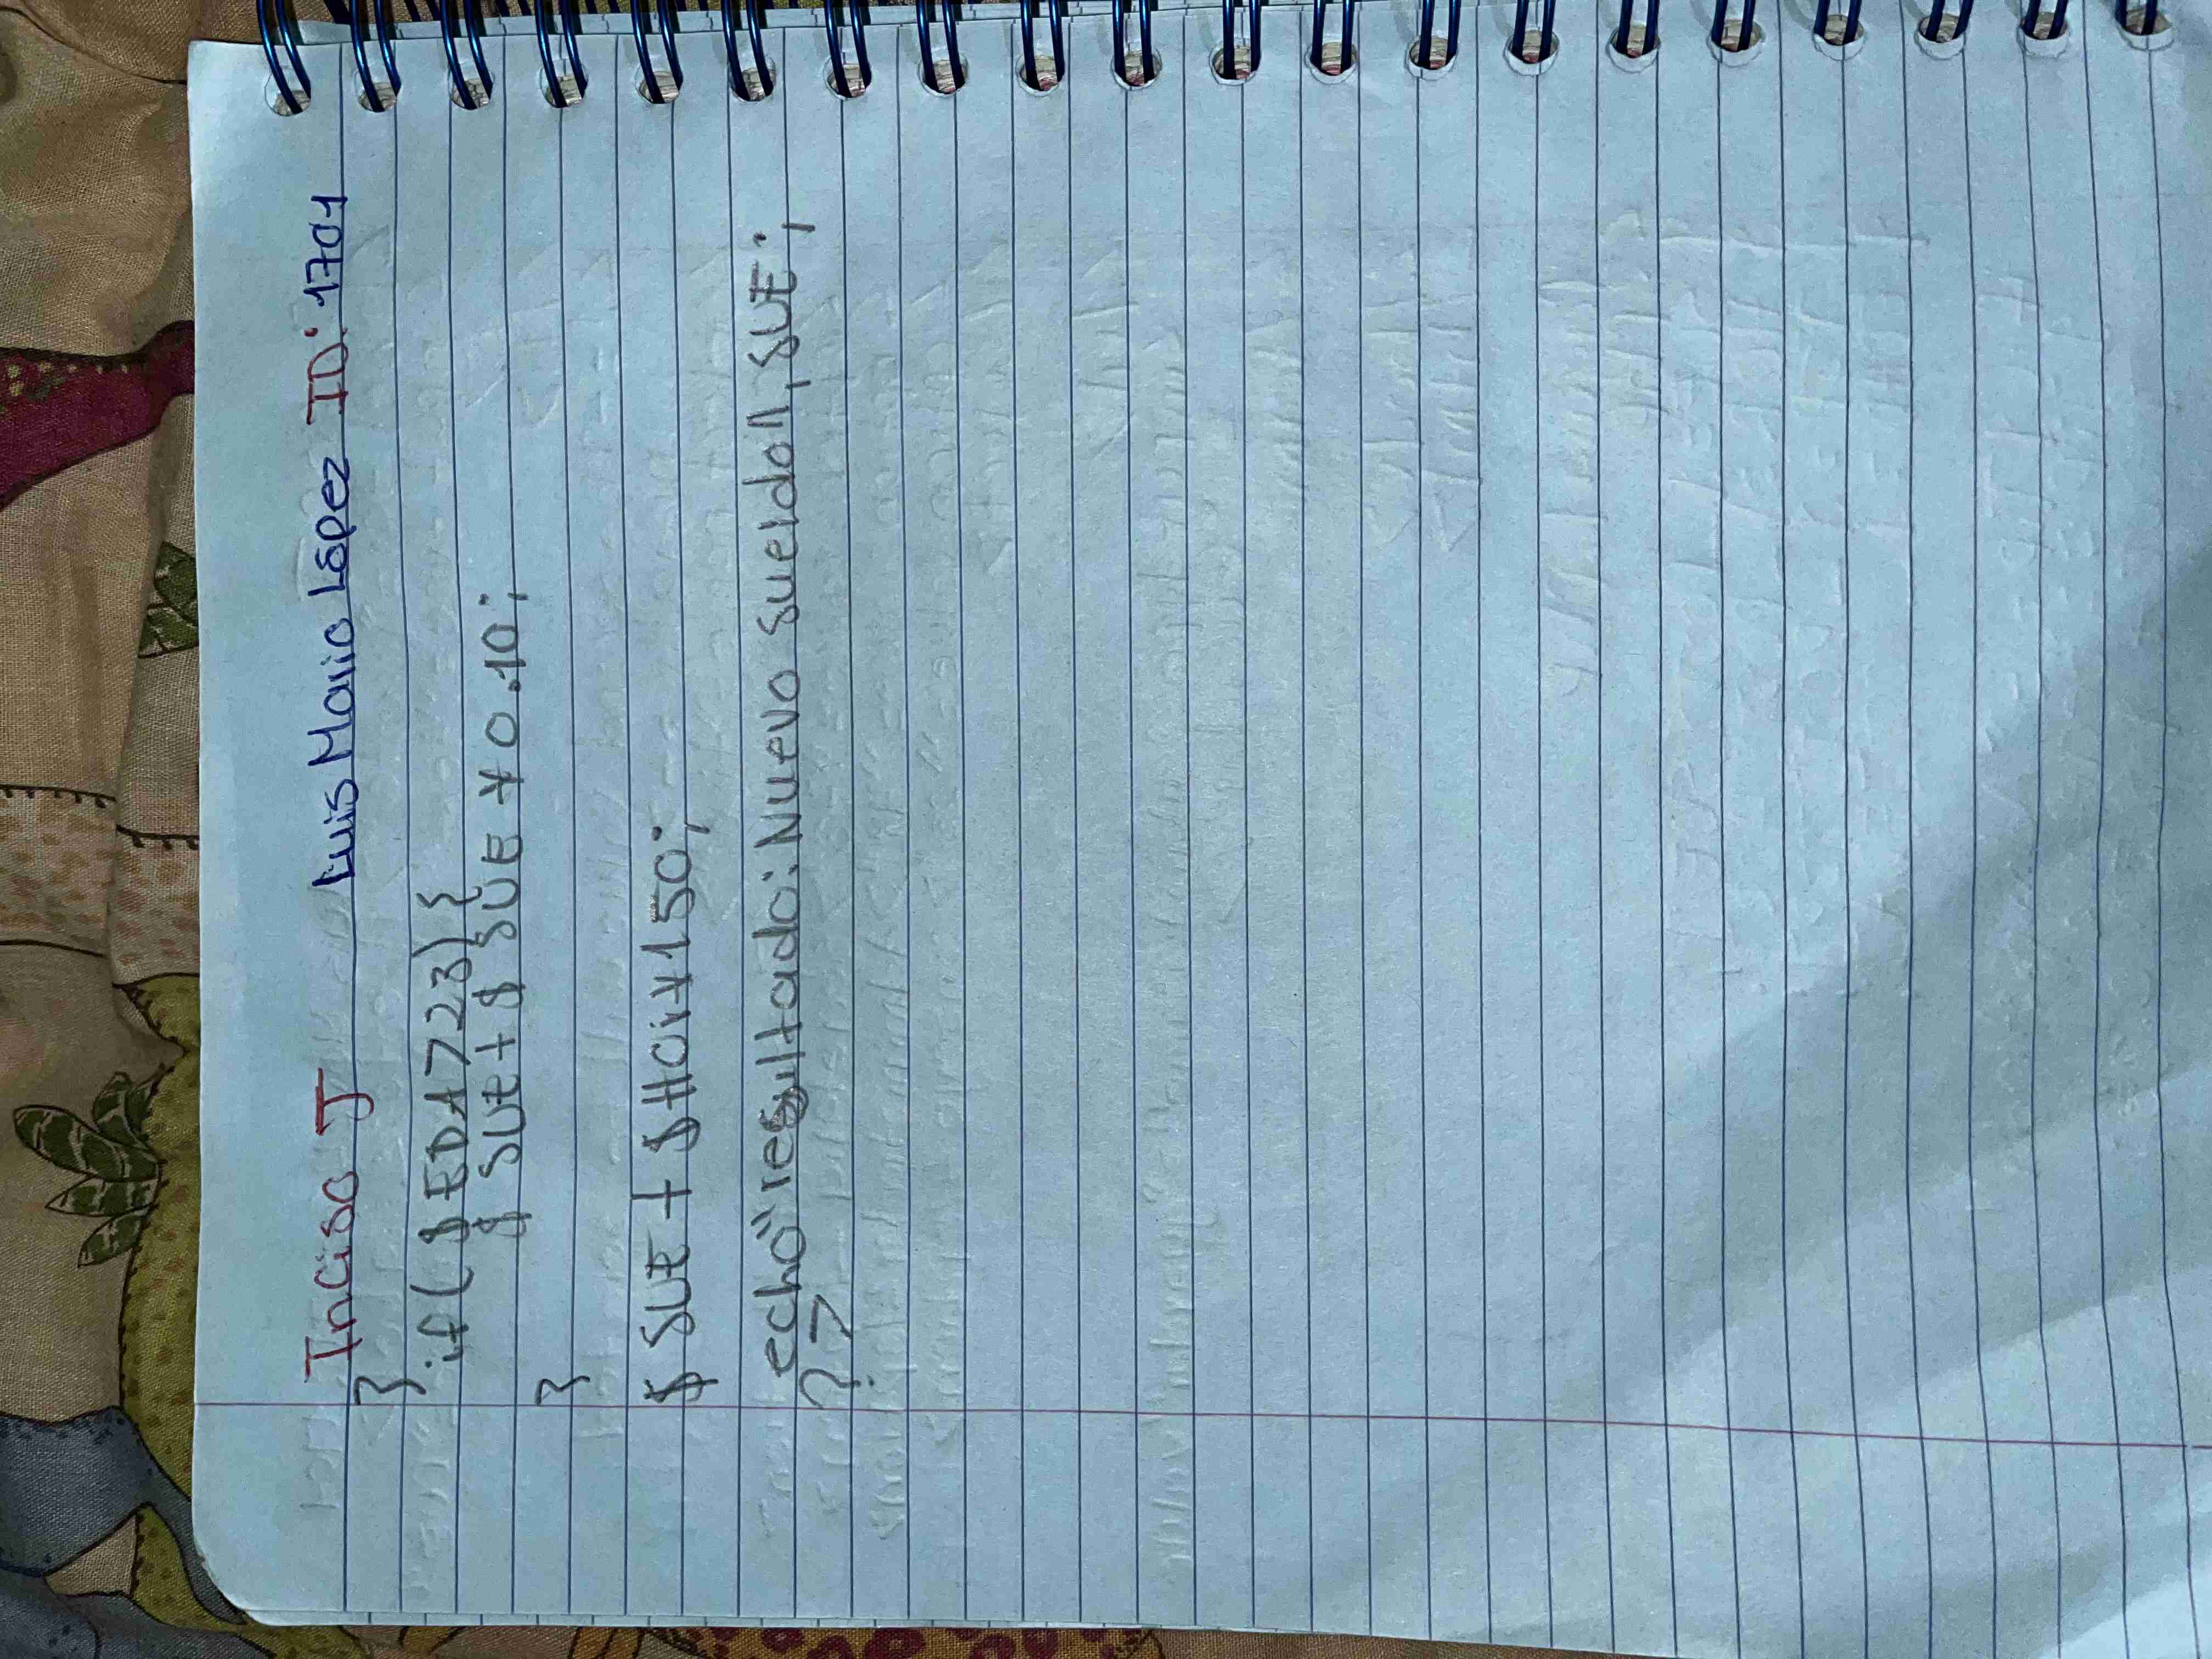 Inciso J Luis Mario López ID: 1701
}
if($EDA723){
$SUE+$SUE*0.10;
}
$SUE+$Hci*150;
echo"resultado:Nuevo sueldo", SUE;
?>